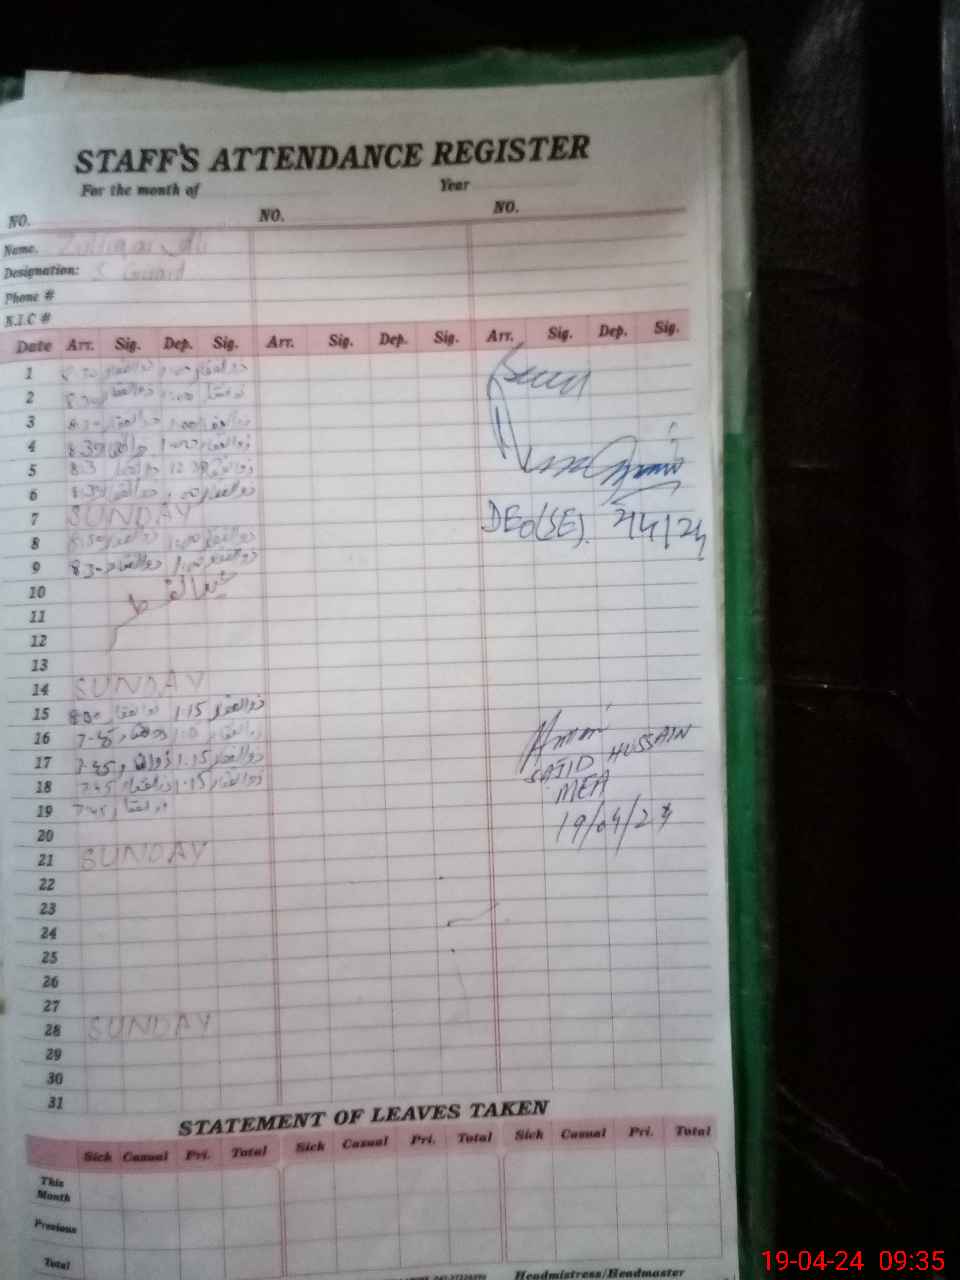 STAFF'S ATTENDANCE REGISTER
For the month of Year
NO. NO. NO.
Name. Zulfiqar Ali
Designation: S Guard
Phone #
N.I.C #
Date Arr. Sig. Dep. Sig. Arr. Sig. Dep. Sig. Arr. Sig. Dep. Sig.
1 8.30 ذوالفقار 1.00 ذوالفقار
2 8.30 ذوالفقار 1.00 ذوالفقار
3 8.30 ذوالفقار 1.00 ذوالفقار
4 8.30 ذوالفقار 1.00 ذوالفقار
5 8.3 ذوالفقار 12.30 ذوالفقار
6 8.30 ذوالفقار 1.00 ذوالفقار
7 SUNDAY
DEO(SE). 2/4/24
8 8.30 ذوالفقار 1.00 ذوالفقار
9 8.30 ذوالفقار 1.00 ذوالفقار
10 عيدالفطر
11
12
13
14 SUNDAY
15 8.00 ذوالفقار 1.15 ذوالفقار
16 7.45 ذوالفقار ذوالفقار
SAJID HUSSAIN
17 7.45 ذوالفقار 1.15 ذوالفقار
MEA
18 7.45 ذوالفقار 1.15 ذوالفقار
19 7.45 ذوالفقار
19/04/24
20
21 SUNDAY
22
23
24
25
26
27
28 SUNDAY
29
30
31
STATEMENT OF LEAVES TAKEN
Sick Casual Pri. Total Sick Casual Pri. Total Sick Casual Pri. Total
This Month
Previous
Total
Headmistress/Headmaster
19-04-24 09:35